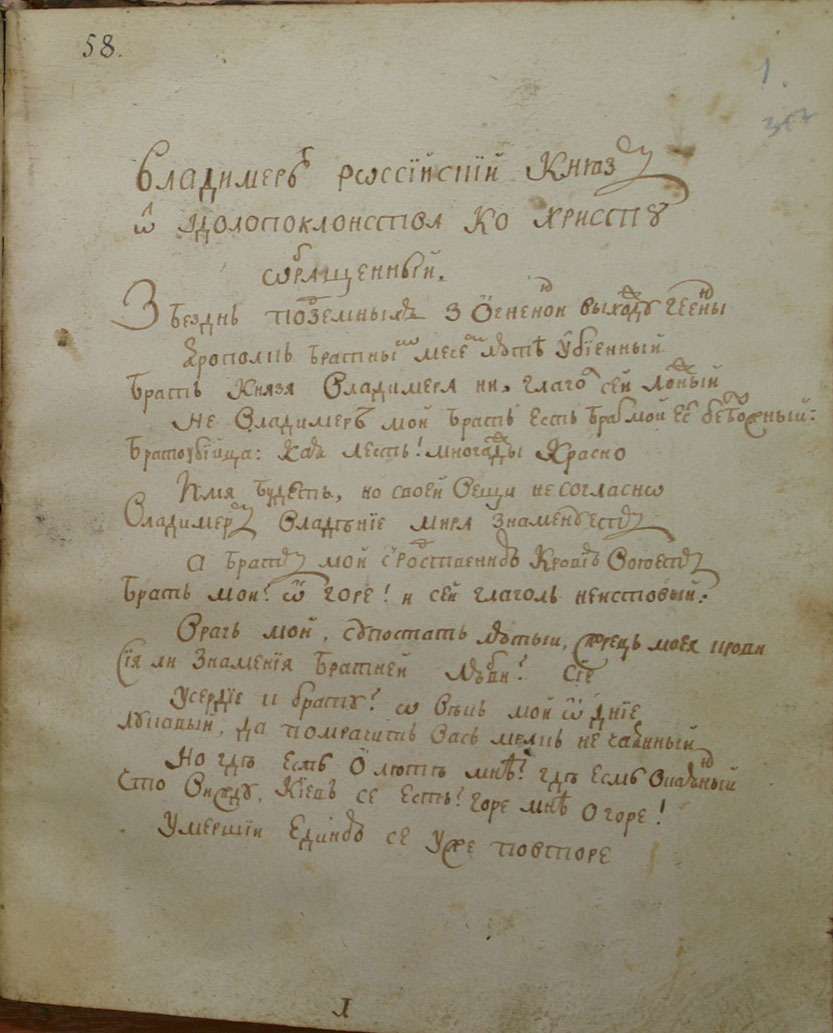 58.
1.
307
Владимеръ рѡссїйскїй Князъ
ѿ идолопоклонства Ко христꙋ
ѡбращенный.
З безднъ подземныхъ з Огненной выходꙋ геенны
Ярополкъ братнимъ мечемъ лютѣ ꙋбїенный
Братъ Князя Владимера ни, глаголъ сей ложный
Не Владимеръ мой братъ естъ врагъ мой есть безбожный:
Братоꙋбїйца: лесть! многажды Красно
Имя бꙋдетъ, но своей вещи несогласно
Владимеръ владѣнїе мира знаменꙋетъ
а братъ мой сродственнꙋю Кровїю воюетъ
Братъ мой? ѿ горе! и сей глаголъ неистовый.
Врагъ мой, сꙋпостатъ лютый, жрецъ моея крови
Сїя ли знаменїя братней любви? Сїе
Усердїе к братꙋ? ѡ вѣкъ мой ѿ днїе
лꙋкавый, да помрачитъ васъ мракъ нечаянный
Но гдѣ есмь О лютѣ мнѣ! гдѣ есмь окаянный
Что виждꙋ, Кїевъ се есть! горе мнѣ О горе!
Умершїй единою се уже повторе
1